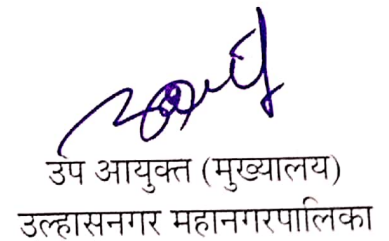 उप आयुक्त (मुख्यालय)
उल्हासनगर महानगरपालिका